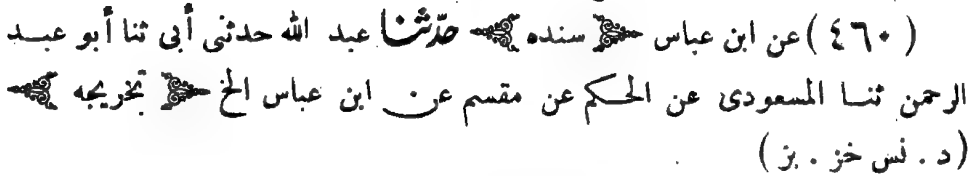 ( ٤٦٠ ) عن ابن عباس سنده حدّثنا عبد الله حدثنى أبى ثنا أبو عبد
الرحمن ثنا المسعودى عن الحكم عن مقسم عن ابن عباس الخ تخريجه
( د . نس خز . بز )